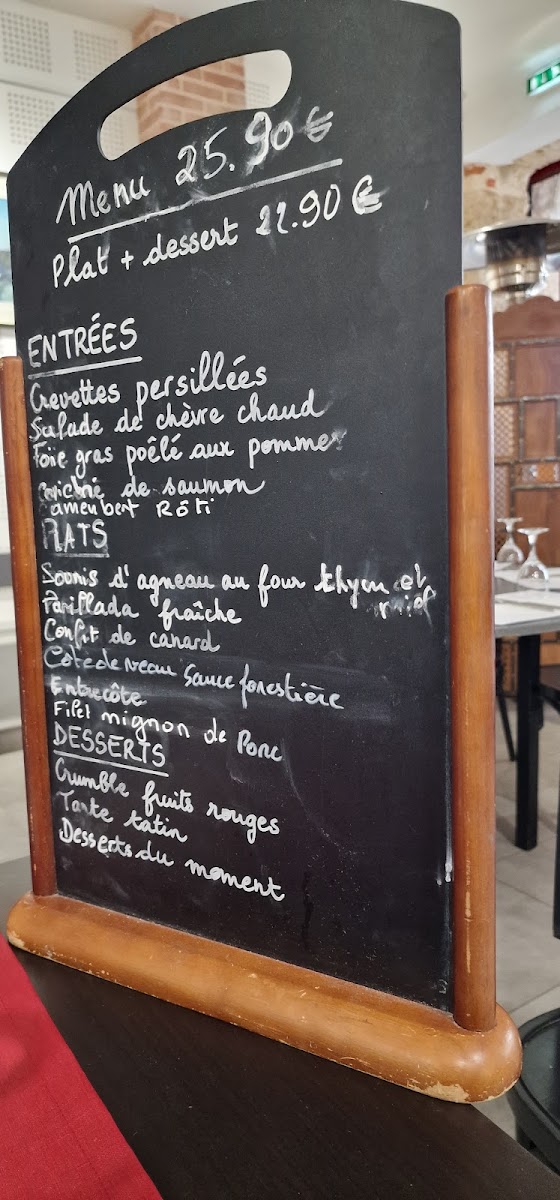 Menu 25.90 €
Plat + dessert 22.90 €
ENTRÉES
Crevettes persillées
Salade de chèvre chaud
Foie gras poêlé aux pommes
de saumon
Camembert Rôti
PLATS
Sooris d'agneau au four thym et
miel
Parillada fraîche
Confit de canard
Côte de veau Sauce forestière
Entrecôte
Filet mignon de Porc
DESSERTS
Crumble fruits rouges
Tarte tatin
Desserts du moment